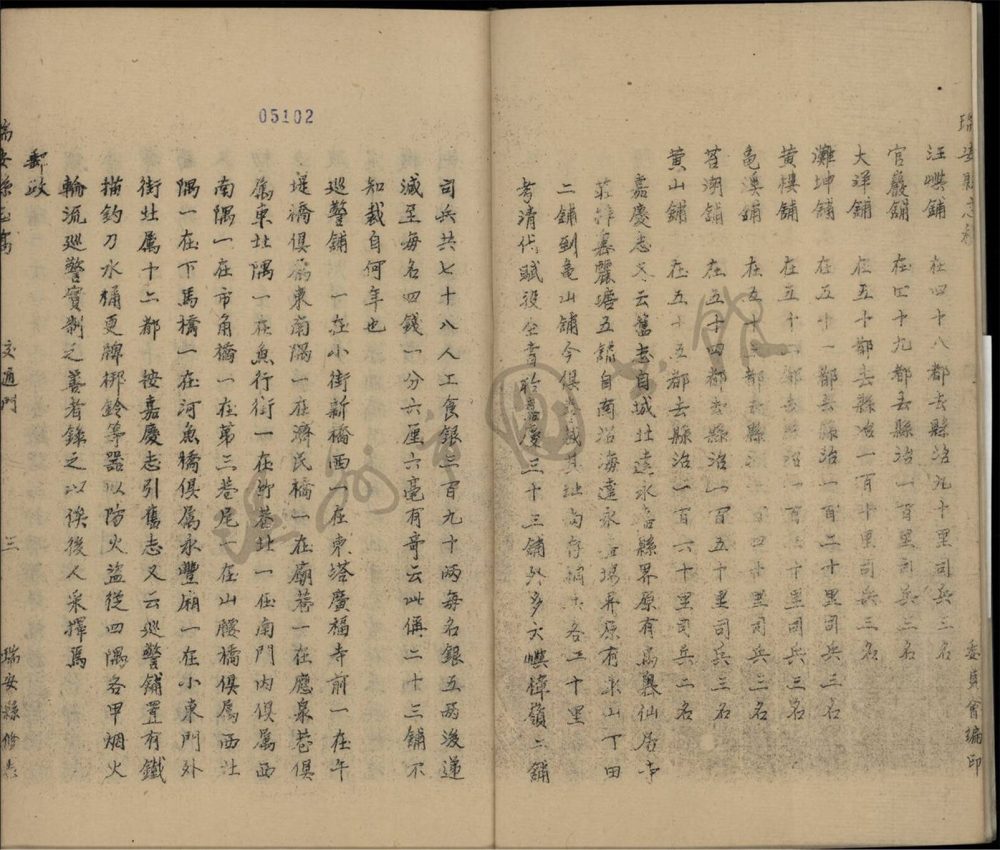 瑞安縣志稿
委員會編印
汪嶼鋪 在四十八都去縣治九十里司兵三名
官巖鋪 在四十九都去縣治一百里司兵三名
大洋鋪 在五十都去縣治一百十里司兵三名
灘坤鋪 在五十一都去縣治一百二十里司兵三名
黃檀鋪 在五十 都去縣治一百 十里司兵三名
龜溪鋪 在五十三都去縣治 四十里司兵二名
莒湖鋪 在五十四都去縣治一百五十里司兵二名
黃山鋪 在五十五都去縣治一百六十里司兵二名
嘉慶志又云舊志自城北達永嘉縣界原有 仙居
麗塘五鋪自南沿海達永 場界原有 山丁田
二鋪到龜山鋪今俱 其址尚存 各二十里
考清代賦役全書 嘉慶三十三鋪外多大嶼樟嶺二鋪
05102
司兵共七十八人工食銀三百九十兩每名銀五兩後遞
減至每名四錢一分六厘六毫有奇云此稱二十三鋪不
知裁自何年也
巡警鋪 一在小街新橋西一在東塔廣福寺前一在午
堤橋俱屬東南隅一在濟民橋一在廟巷一在應泉巷俱
屬東北隅一在魚行街一在竹巷北一在南門內俱屬西
南隅一在市角橋一在第三巷尾一在山腰橋俱屬西北
隅一在下馬橋一在河魚橋俱屬永豐廂一在小東門外
街北屬十二都按嘉慶志引舊志又云巡警鋪置有鐵
猫鈎刀水桶更牌梆鈴等器以防火盜從四隅各甲烟火
輪流巡警實制之善者錄之以俟後人采擇焉
郵政
瑞安縣志稿 交通門 三 瑞安縣修志